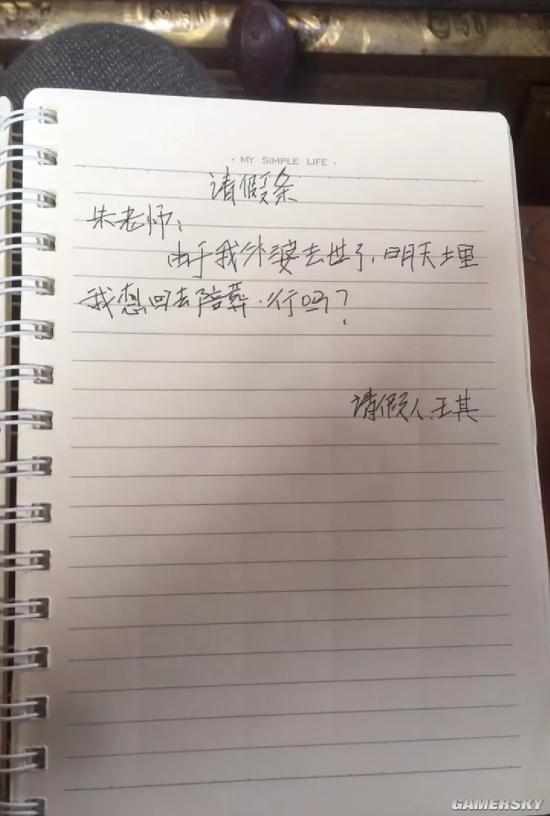 · MY SIMPLE LIFE ·
请假条
朱老师：
由于我外婆去世了，明天土埋
我想回去陪葬．行吗？
请假人、王其
GAMERSKY